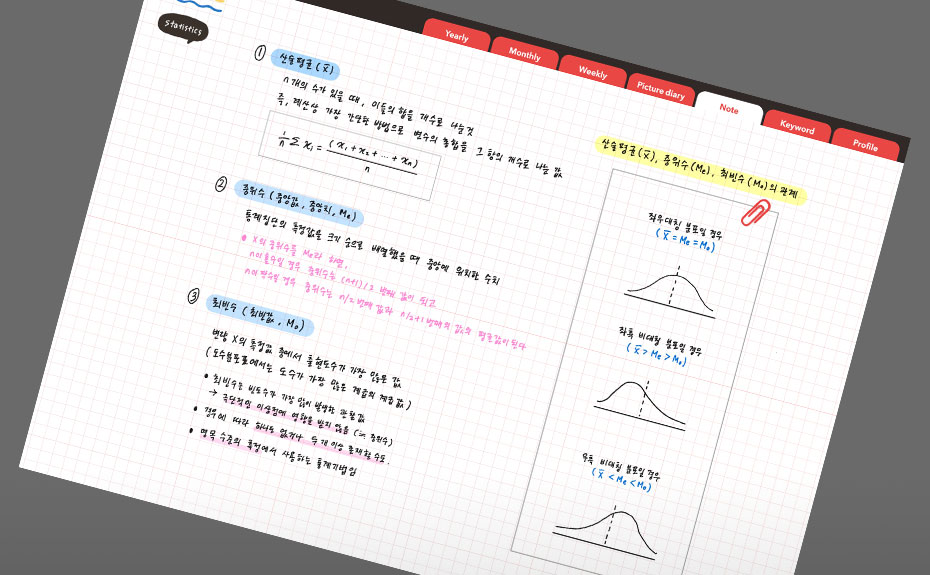 Statistics
Yearly
Monthly
Weekly
Picture diary
Note
Keyword
Profile
① 산술평균(x̄)
n개의 수가 있을 때, 이들의 합을 개수로 나눈것
즉, 계산상 가장 간단한 방법으로 변수의 총합을 그 항의 개수로 나눈 값
1/n Σ x₁ = (x₁+x₂+...+xₙ)/n
② 중위수(중앙값, 중앙치, Me)
통계집단의 측정값을 크기 순으로 배열했을 때 중앙에 위치한 수치
• X의 중위수를 Me라 하면,
n이 홀수일 경우 중위수는 (n+1)/2 번째 값이 되고
n이 짝수일 경우 중위수는 n/2 번째 값과 n/2+1 번째의 값의 평균값이 된다
③ 최빈수(최빈값, Mo)
변량 X의 측정값 중에서 출현도수가 가장 많은 값
(도수분포표에서는 도수가 가장 많은 계급의 계급값)
• 최빈수는 빈도수가 가장 많이 발생한 관찰값
→ 극단적인 이상점에 영향을 받지 않음 (in 중위수)
• 경우에 따라 하나도 없거나 두 개 이상 존재할 수도.
• 명목 수준의 측정에서 사용하는 통계기법임
산술평균(x̄), 중위수(Me), 최빈수(Mo)의 관계
좌우대칭 분포일 경우
(x̄ = Me = Mo)
좌측 비대칭 분포일 경우
(x̄ > Me > Mo)
우측 비대칭 분포일 경우
(x̄ < Me < Mo)